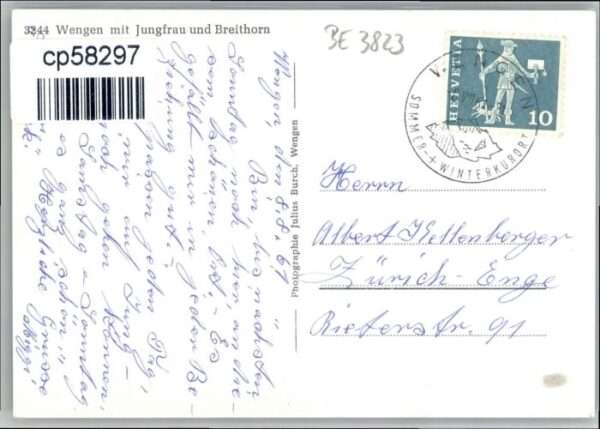 3244 Wengen mit Jungfrau und Breithorn
cp58297
BE 3823
HELVETIA
10
WENGEN
SOMMER- + WINTERKURORT
Photographie Julius Burch, Wengen
Wengen den 8.8.67
Bin, bis nächsten
Sonntag noch hier, an die-
sem schönen Ort. – Es
gefällt mir in jeder Be-
ziehung gut. –
haben jeden Tag
mir auf Jung-
noch gehen können,
Samstag – Sonntag
so ganz schön"
Herzliche Grüsse
Herrn
Albert Kellenberger
Zürich-Enge
Rieterstr. 91